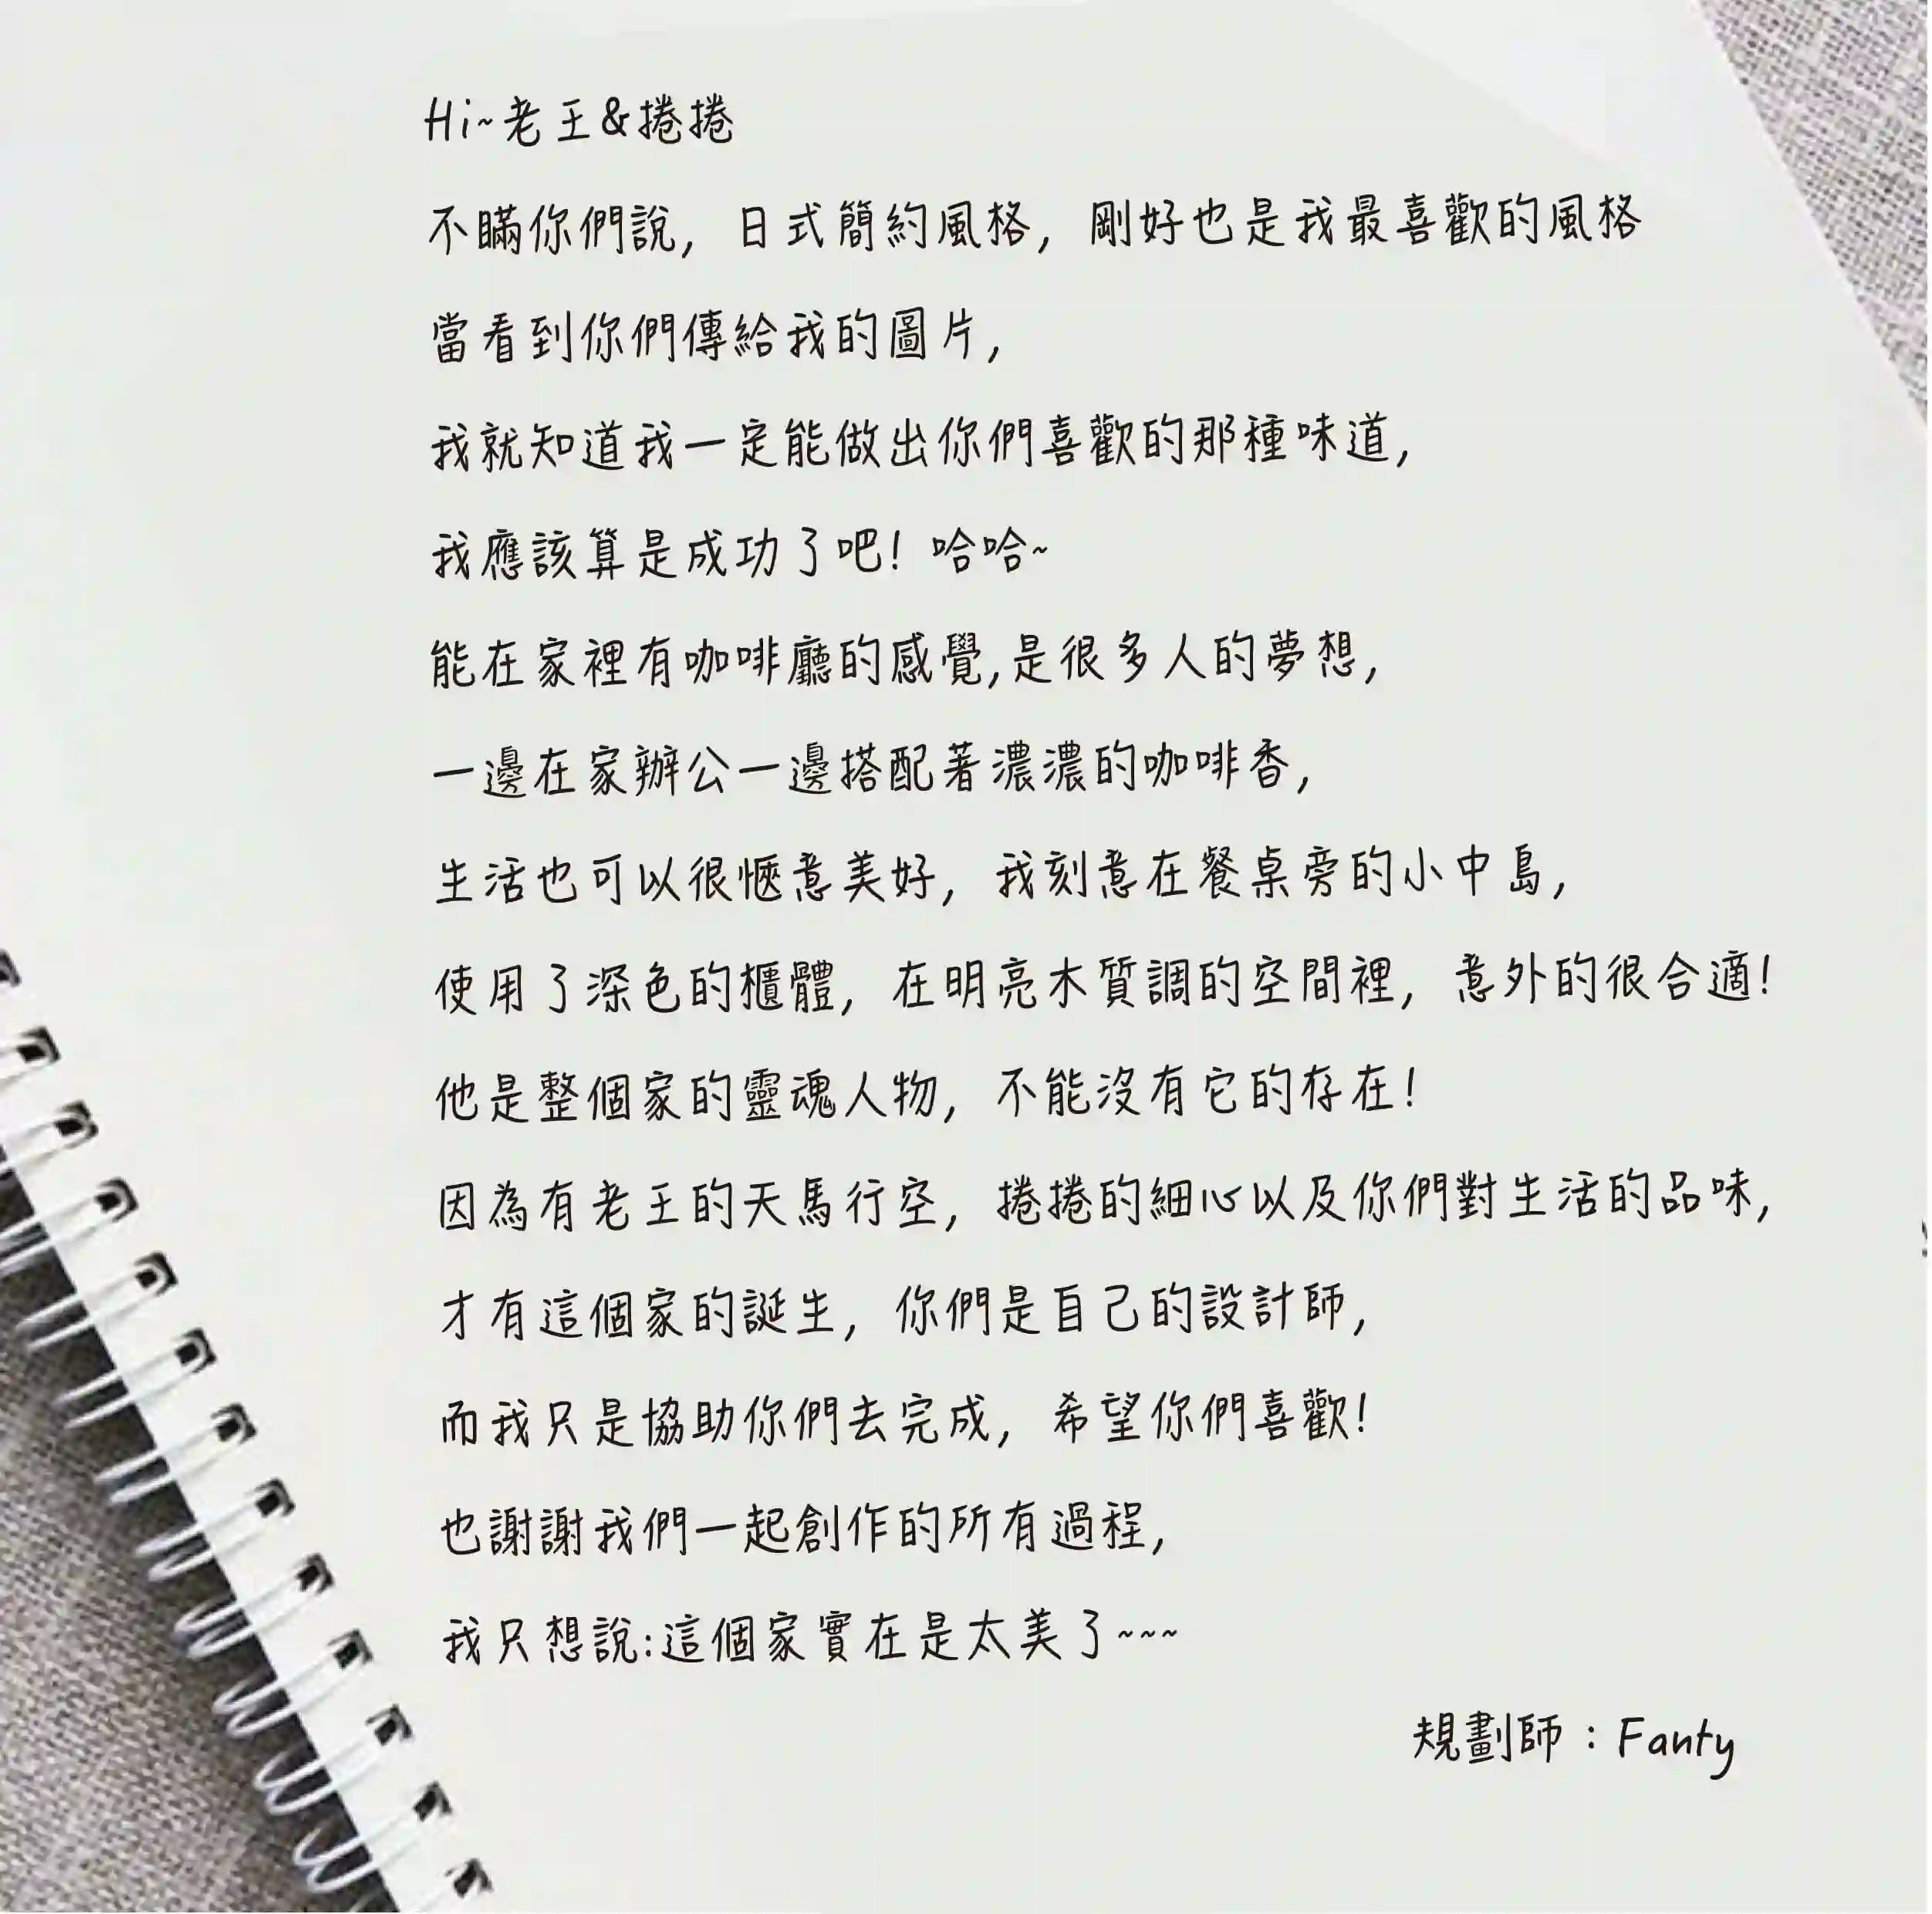 Hi~老王&捲捲
不瞞你們說, 日式簡約風格, 剛好也是我最喜歡的風格
當看到你們傳給我的圖片,
我就知道我一定能做出你們喜歡的那種味道,
我應該算是成功了吧! 哈哈~
能在家裡有咖啡廳的感覺,是很多人的夢想,
一邊在家辦公一邊搭配著濃濃的咖啡香,
生活也可以很愜意美好, 我刻意在餐桌旁的小中島,
使用了深色的櫃體, 在明亮木質調的空間裡, 意外的很合適!
他是整個家的靈魂人物, 不能沒有它的存在!
因為有老王的天馬行空, 捲捲的細心以及你們對生活的品味,
才有這個家的誕生, 你們是自己的設計師,
而我只是協助你們去完成, 希望你們喜歡!
也謝謝我們一起創作的所有過程,
我只想說:這個家實在是太美了~~~
規劃師：Fanty